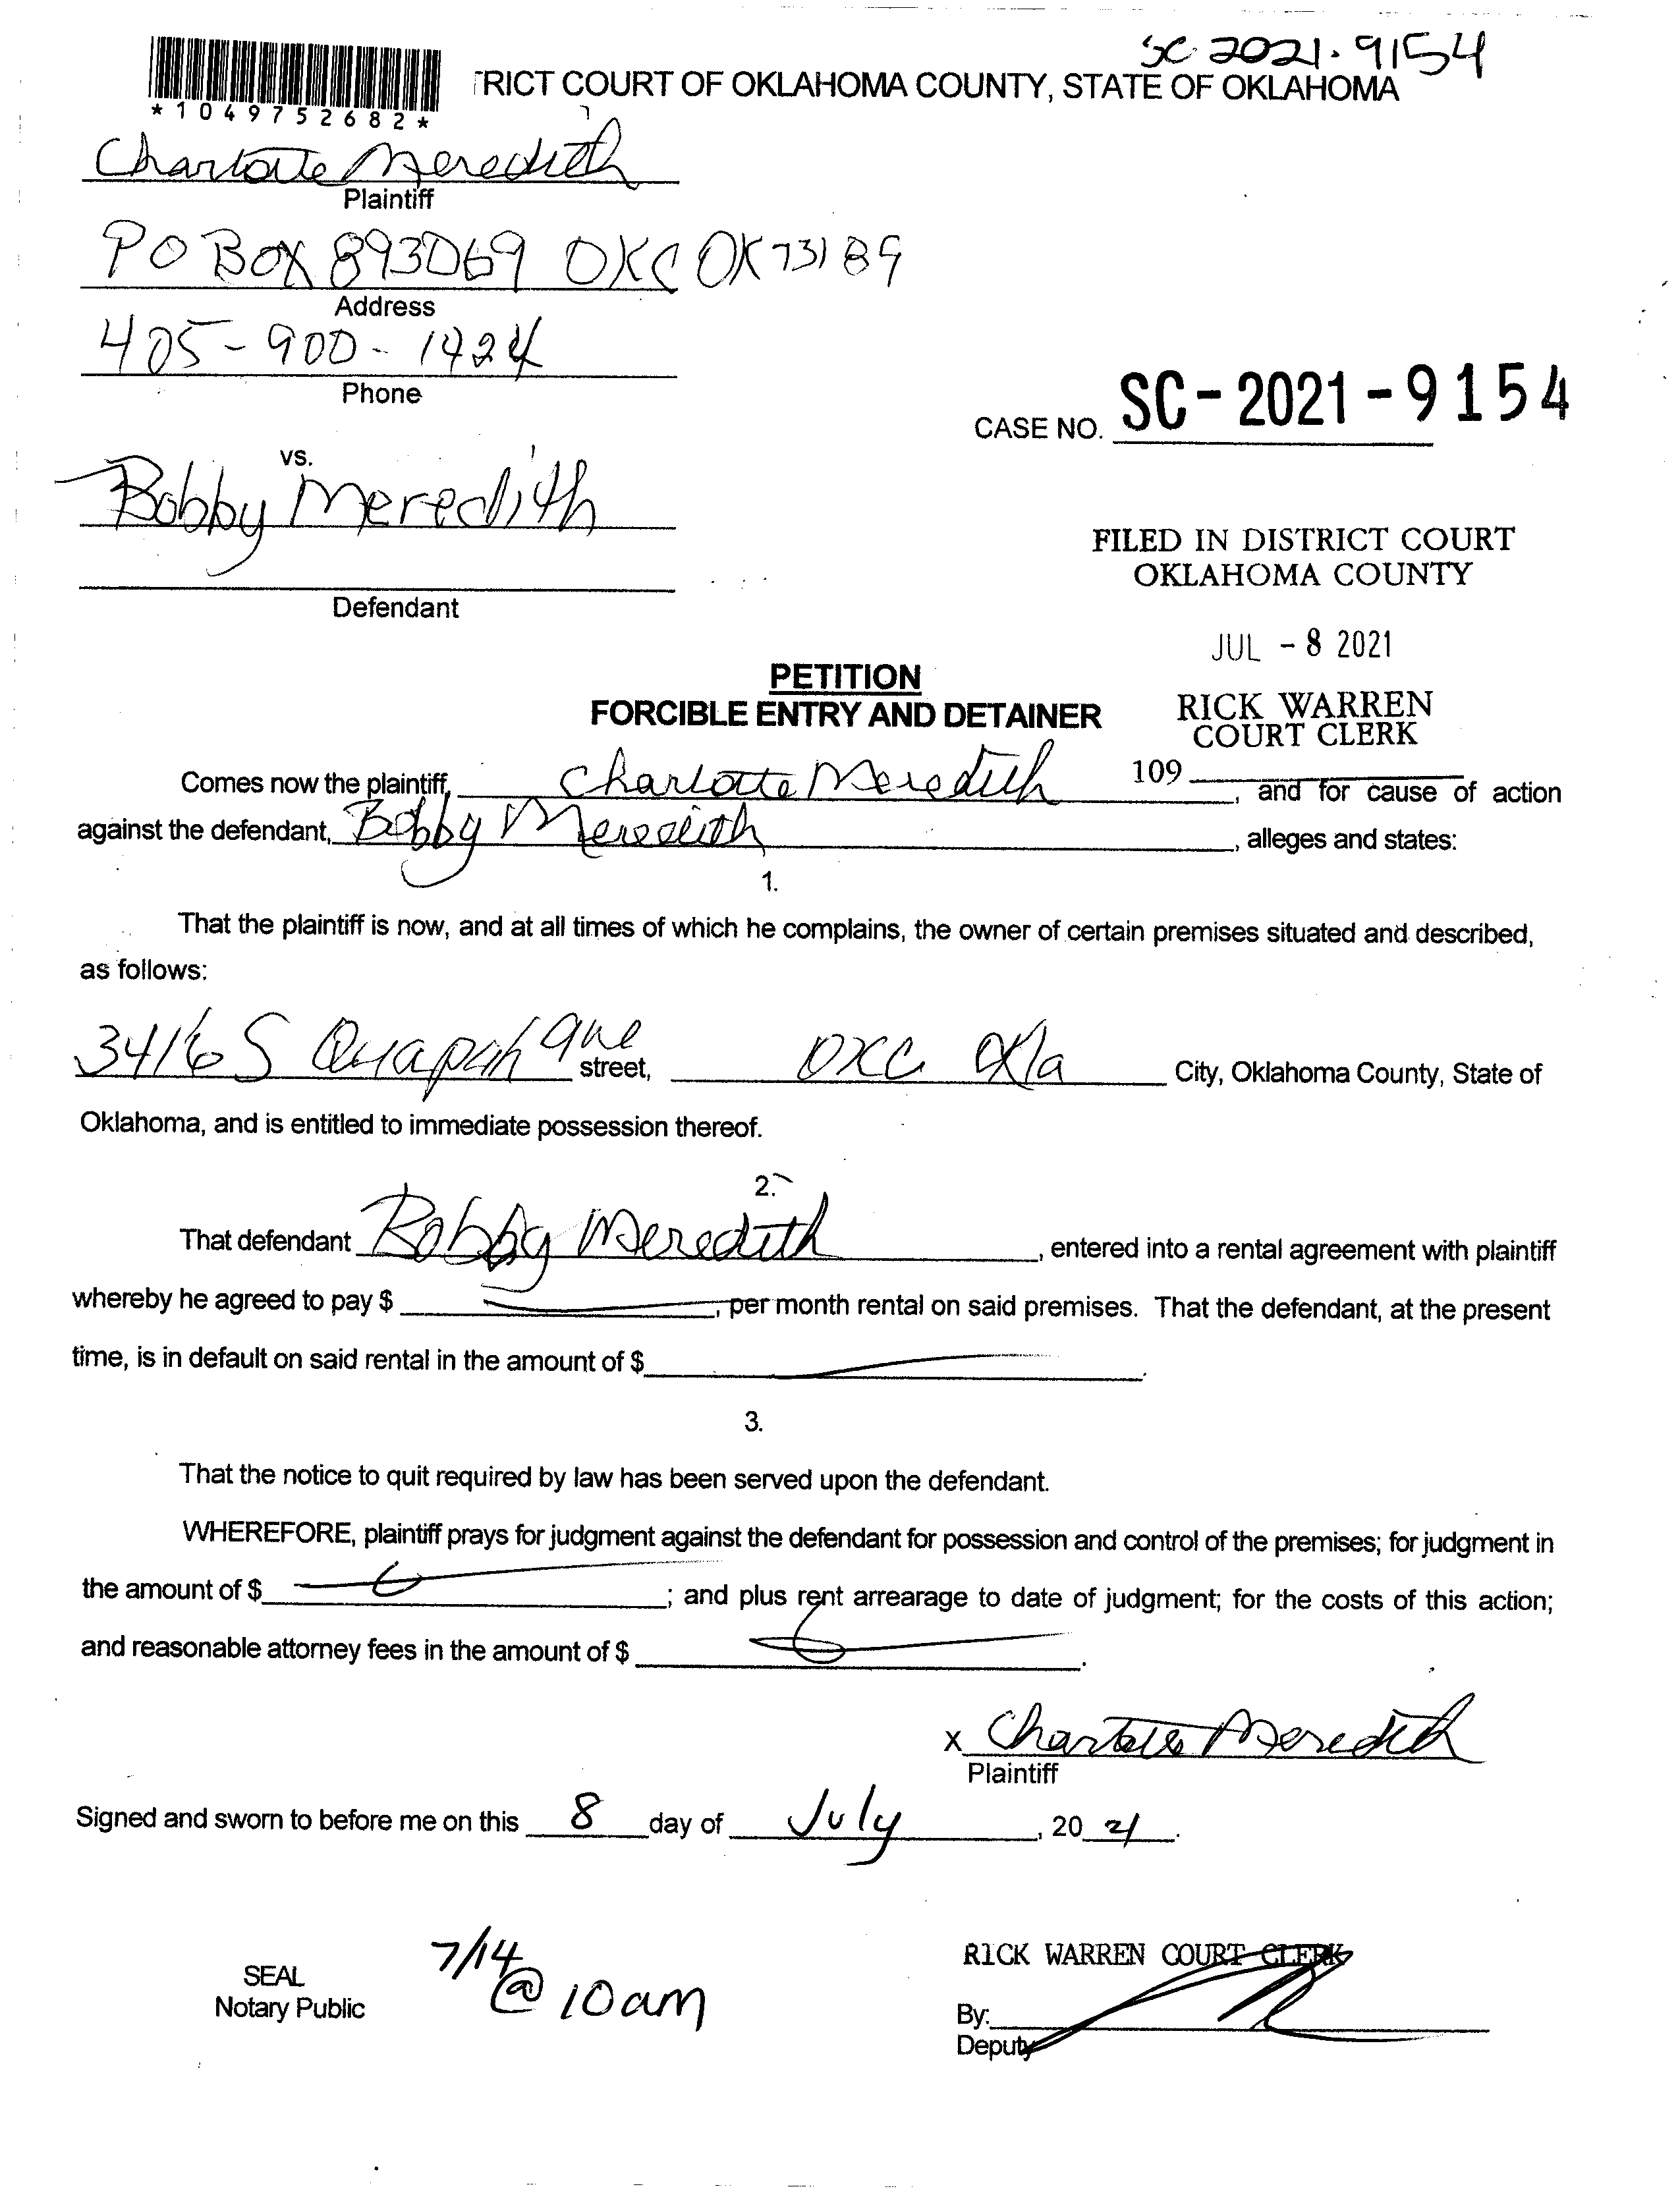 SC 2021-9154
TRICT COURT OF OKLAHOMA COUNTY, STATE OF OKLAHOMA
*1049752682*
Charlotte Meredith
Plaintiff
PO Box 893069 OKC OK 73189
Address
405-900-1424
Phone
CASE NO. SC-2021-9154
vs.
Bobby Meredith
Defendant
FILED IN DISTRICT COURT
OKLAHOMA COUNTY
JUL -8 2021
RICK WARREN
COURT CLERK
109
PETITION
FORCIBLE ENTRY AND DETAINER
Comes now the plaintiff, Charlotte Meredith, and for cause of action
against the defendant, Bobby Meredith, alleges and states:
1.
That the plaintiff is now, and at all times of which he complains, the owner of certain premises situated and described,
as follows:
3416 S Quapah ave street, OKC Okla City, Oklahoma County, State of
Oklahoma, and is entitled to immediate possession thereof.
2.
That defendant Bobby Meredith, entered into a rental agreement with plaintiff
whereby he agreed to pay $ , per month rental on said premises. That the defendant, at the present
time, is in default on said rental in the amount of $ .
3.
That the notice to quit required by law has been served upon the defendant.
WHEREFORE, plaintiff prays for judgment against the defendant for possession and control of the premises; for judgment in
the amount of $ ; and plus rent arrearage to date of judgment; for the costs of this action;
and reasonable attorney fees in the amount of $ .
X Charlotte Meredith
Plaintiff
Signed and sworn to before me on this 8 day of July, 2021.
7/14 @ 10am
SEAL
Notary Public
RICK WARREN COURT CLERK
By:
Deputy